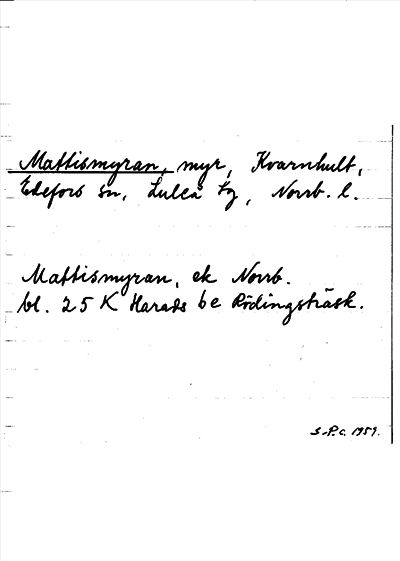 Mattismyran, myr, Kvarnhult,
Edefors sn, Luleå tg, Norrb. l.
Mattismyran, ek Norrb.
bl. 25 K Harads be Rödingsträsk.
S.P.C. 1959.